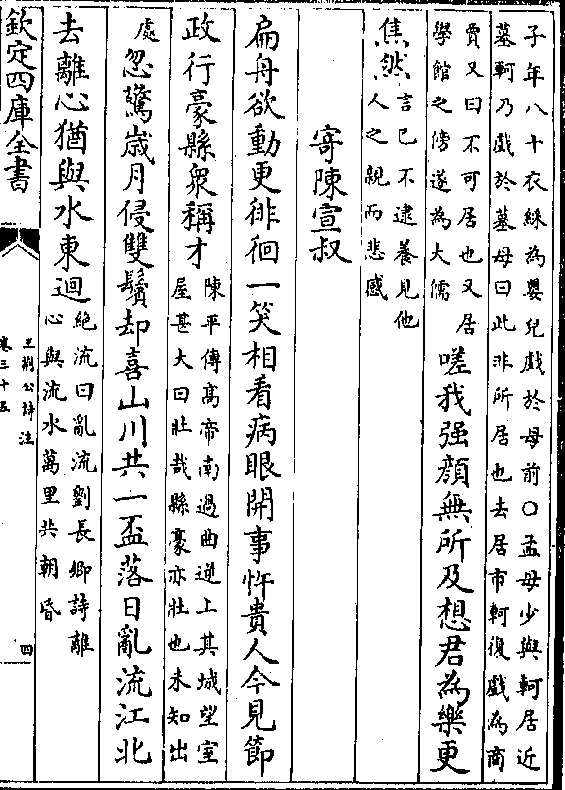 子年八十衣綵為嬰兒戲於母前○孟母少與軻居近
墓軻乃戲於墓母曰此非所居也去居市軻復戲為商
賈又曰不可居也又居
學館之傍遂為大儒
嗟我强顔無所及想君為樂更
焦然
言已不逮養見他
人之親而悲感
寄陳宣叔
扁舟欲動更徘徊一笑相看病眼開事忤貴人今見節
政行豪縣衆稱才
陳平傳高帝南過曲逆上其城望室
屋甚大曰壯哉縣豪亦壯也未知出
處
忽驚歲月侵雙鬢却喜山川共一盃落日亂流江北
去離心猶與水東迴
絶流曰亂流劉長卿詩離
心與流水萬里共朝昏
欽定四庫全書
王荆公詩注
卷三十五
四